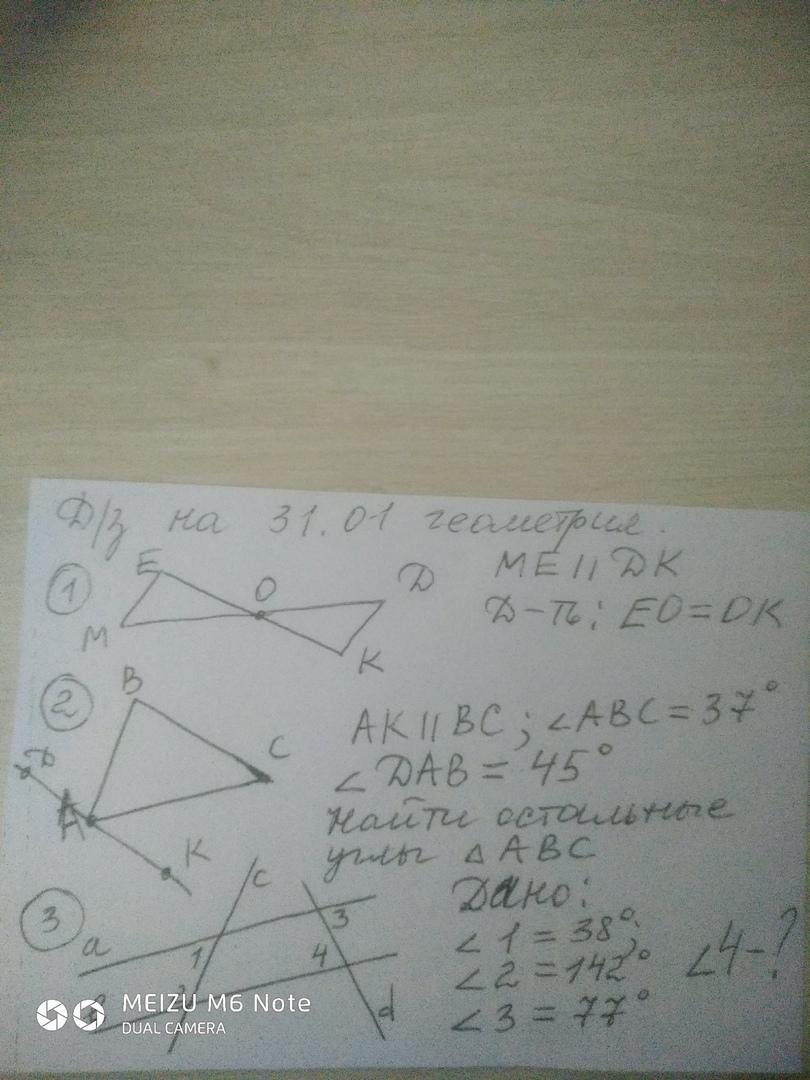 Д/з на 31.01 геометрия.
1
E
O
D
M
K
ME || DK
Д-ть: EO = OK
2
B
C
D
A
K
AK || BC; ∠ABC = 37°
∠DAB = 45°
найти остальные
углы △ABC
3
a
c
1
3
4
d
Дано:
∠1 = 38°;
∠2 = 142°
∠3 = 77°
∠4-?
MEIZU M6 Note
DUAL CAMERA